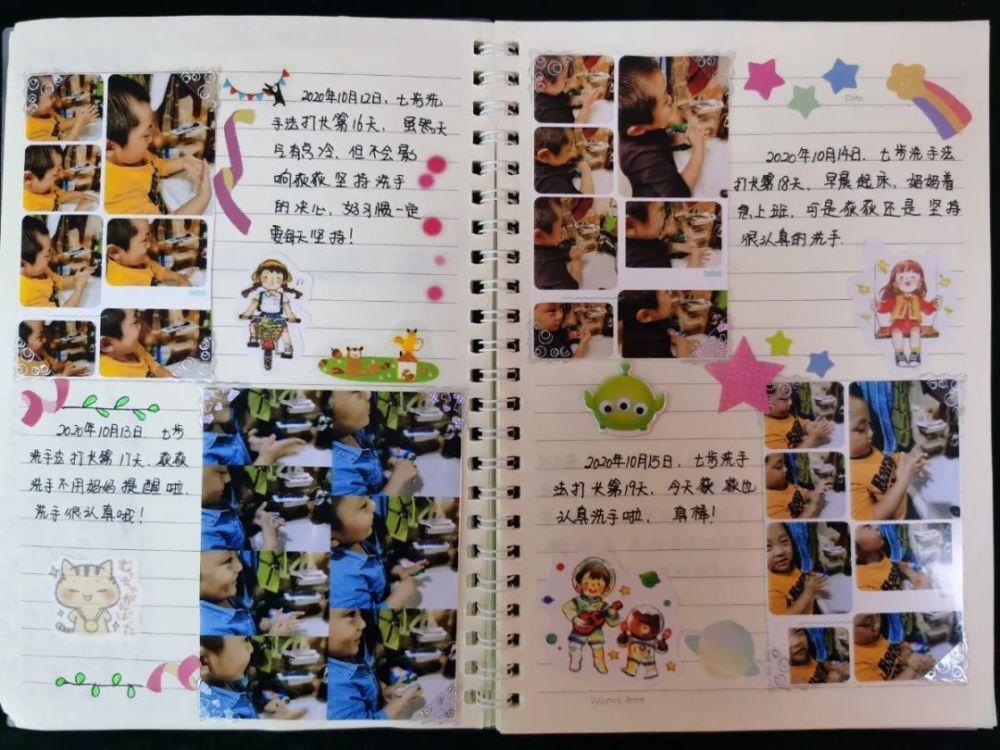 2020年10月12日，七步洗
手法打卡第16天，虽然天
气有点冷，但不会影
响荻荻坚持洗手
的决心，好习惯一定
要每天坚持！
2020年10月13日，七步
洗手法打卡第17天，荻荻
洗手不用妈妈提醒啦，
洗手很认真哦！
Date
2020年10月14日，七步洗手法
打卡第18天，早晨起床，妈妈着
急上班，可是荻荻还是坚持
很认真的洗手.
2020年10月15日，七步洗手
法打卡第19天，今天荻荻也
认真洗手啦，真棒！